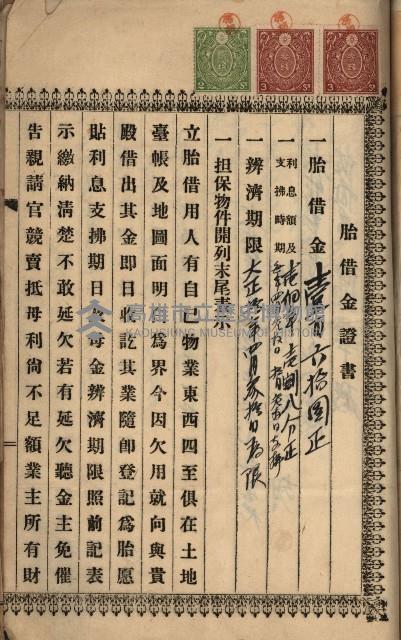 胎借金證書
一胎借金 壹百六拾圓正
一利息額及支拂時期
一辨濟期限 大正 年四月參拾日為限
一担保物件開列末尾表示
立胎借用人有自己物業東西四至俱在土地
臺帳及地圖面明 為界今因欠用就向與貴
殿借出其金即日收訖其業隨即登記為胎愿
貼利息支拂期日及母金辨濟期限照前記表
示繳納清楚不敢延欠若有延欠聽金主免催
告親請官競賣抵母利尙不足額業主所有財
高雄市立歷史博物館
KAOHSIUNG MUSEUM OF HISTORY